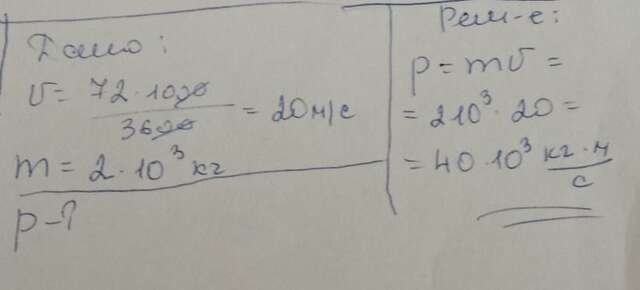 Дано:
υ = 72·1000/3600 = 20 м/с
m = 2·10³ кг
p - ?
Реш-е:
p = mυ =
= 2 10³ · 20 =
= 40·10³ кг·м/с